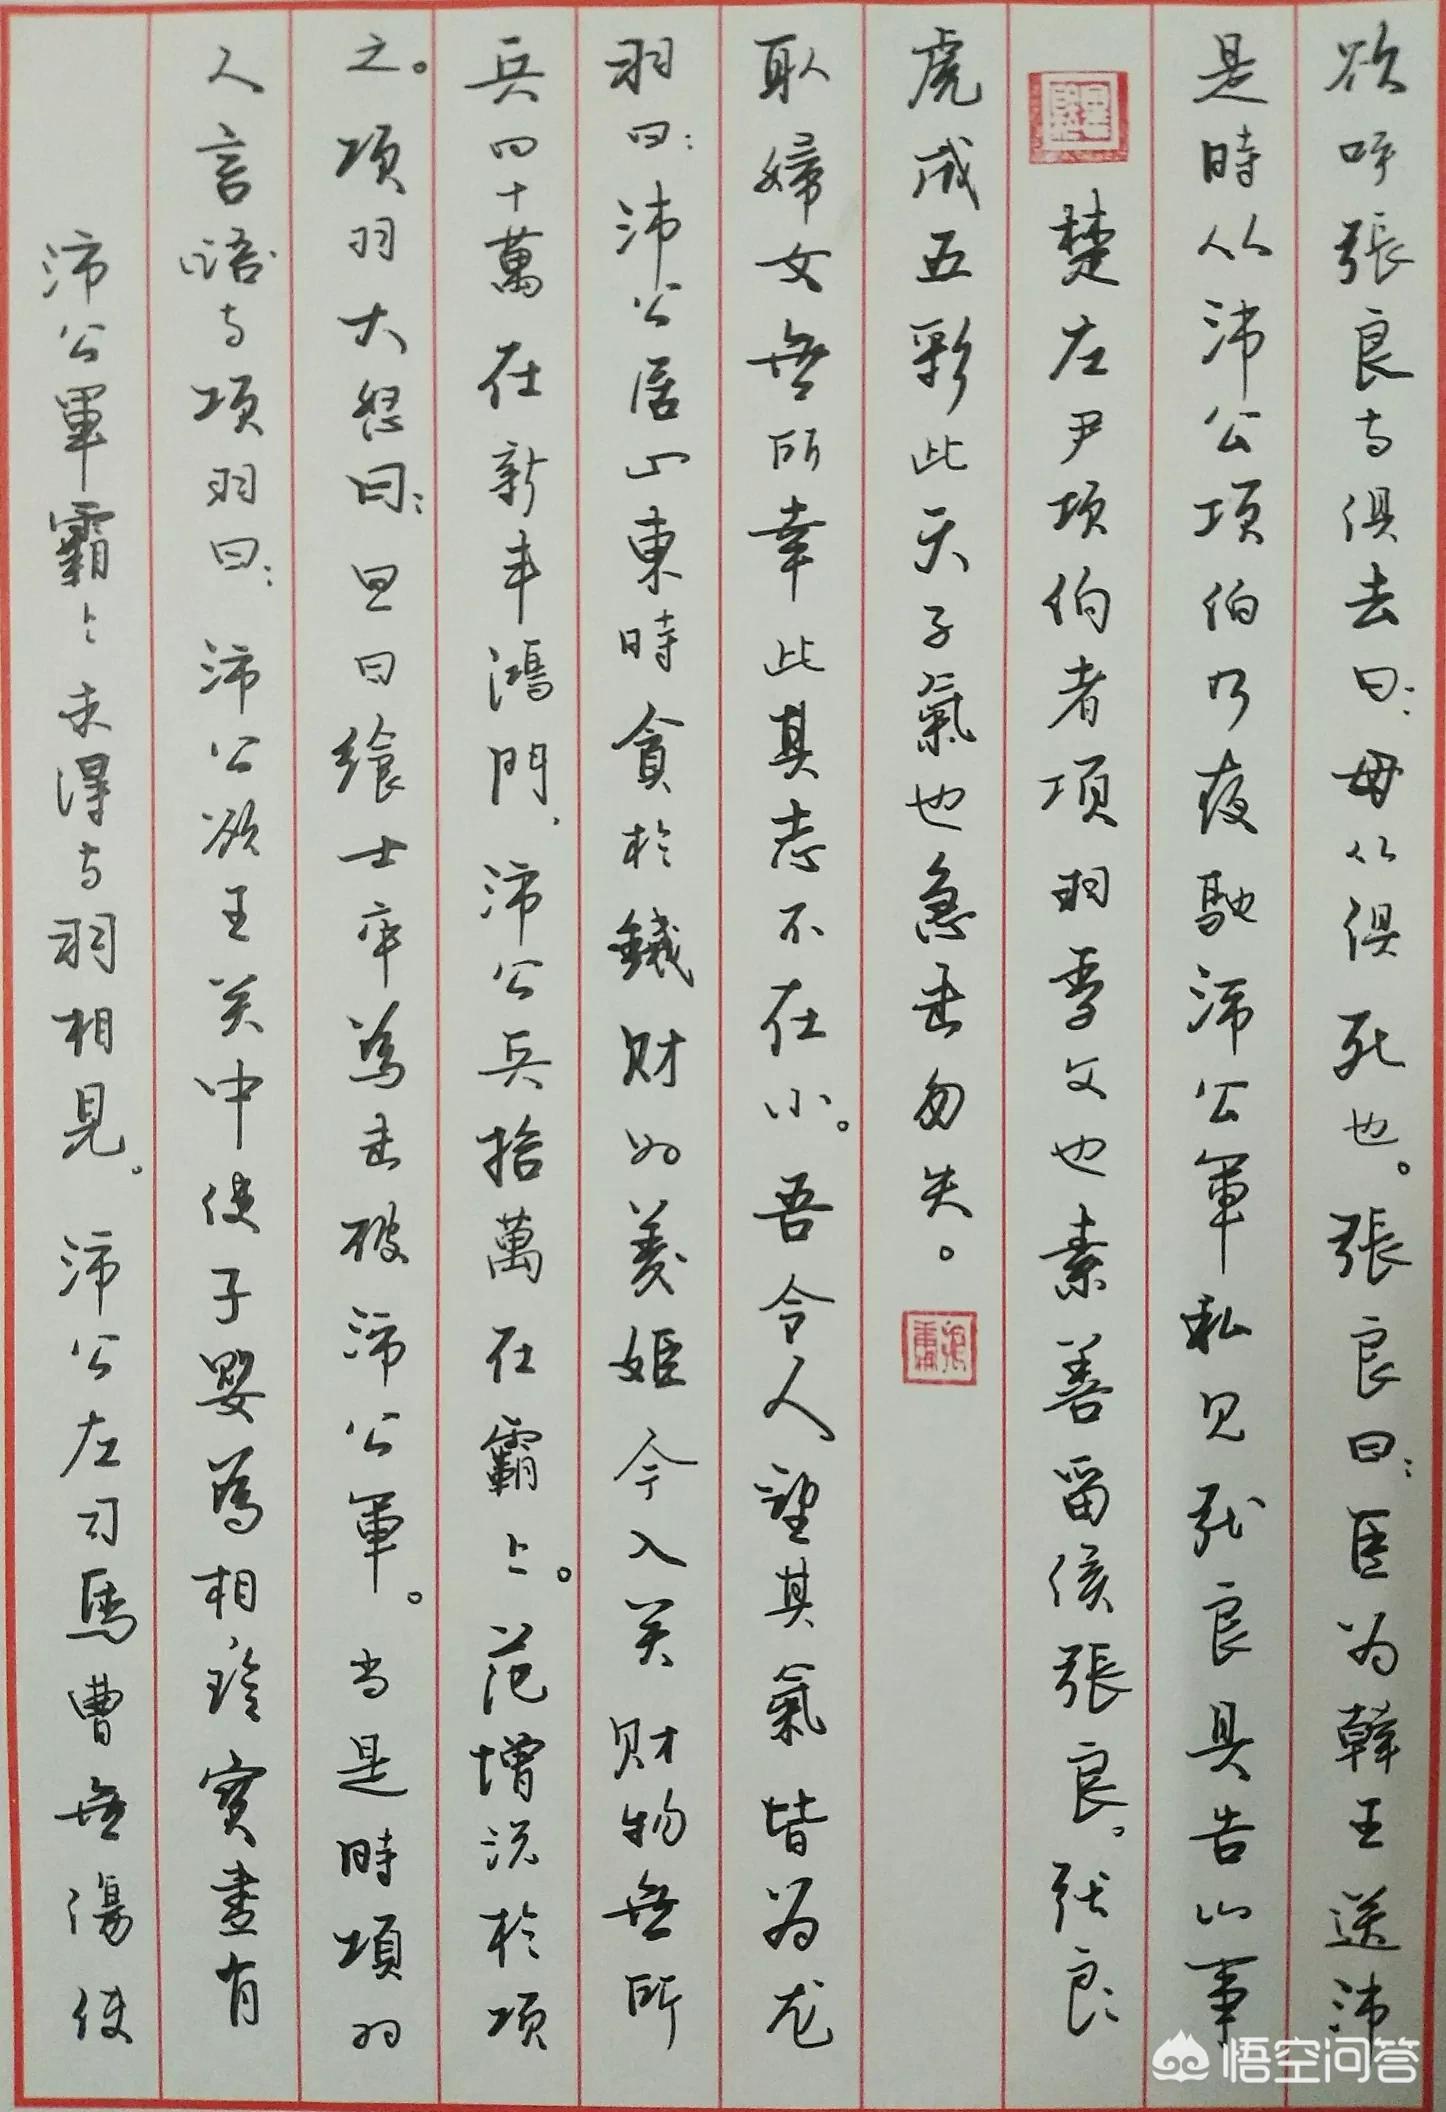 沛公軍霸上未得与羽相見。沛公左司馬曹無傷使
人言語与項羽曰：沛公欲王关中使子嬰為相，珍寶盡有
之。項羽大怒曰：旦日饗士卒為击破沛公軍。当是時項羽
兵四十萬在新丰鴻門，沛公兵拾萬在霸上。范增说於項
羽曰：沛公居山東時貪於錢財好美姬今入关財物無所
取婦女無所幸此其志不在小。吾令人望其氣皆为龙
虎成五彩此天子氣也急击勿失。
楚左尹項伯者項羽季父也素善留侯張良。张良
是時从沛公項伯乃夜馳沛公軍私见张良具告以事
欲呼張良与俱去曰：毋从俱死也。張良曰：臣为韓王送沛
悟空问答